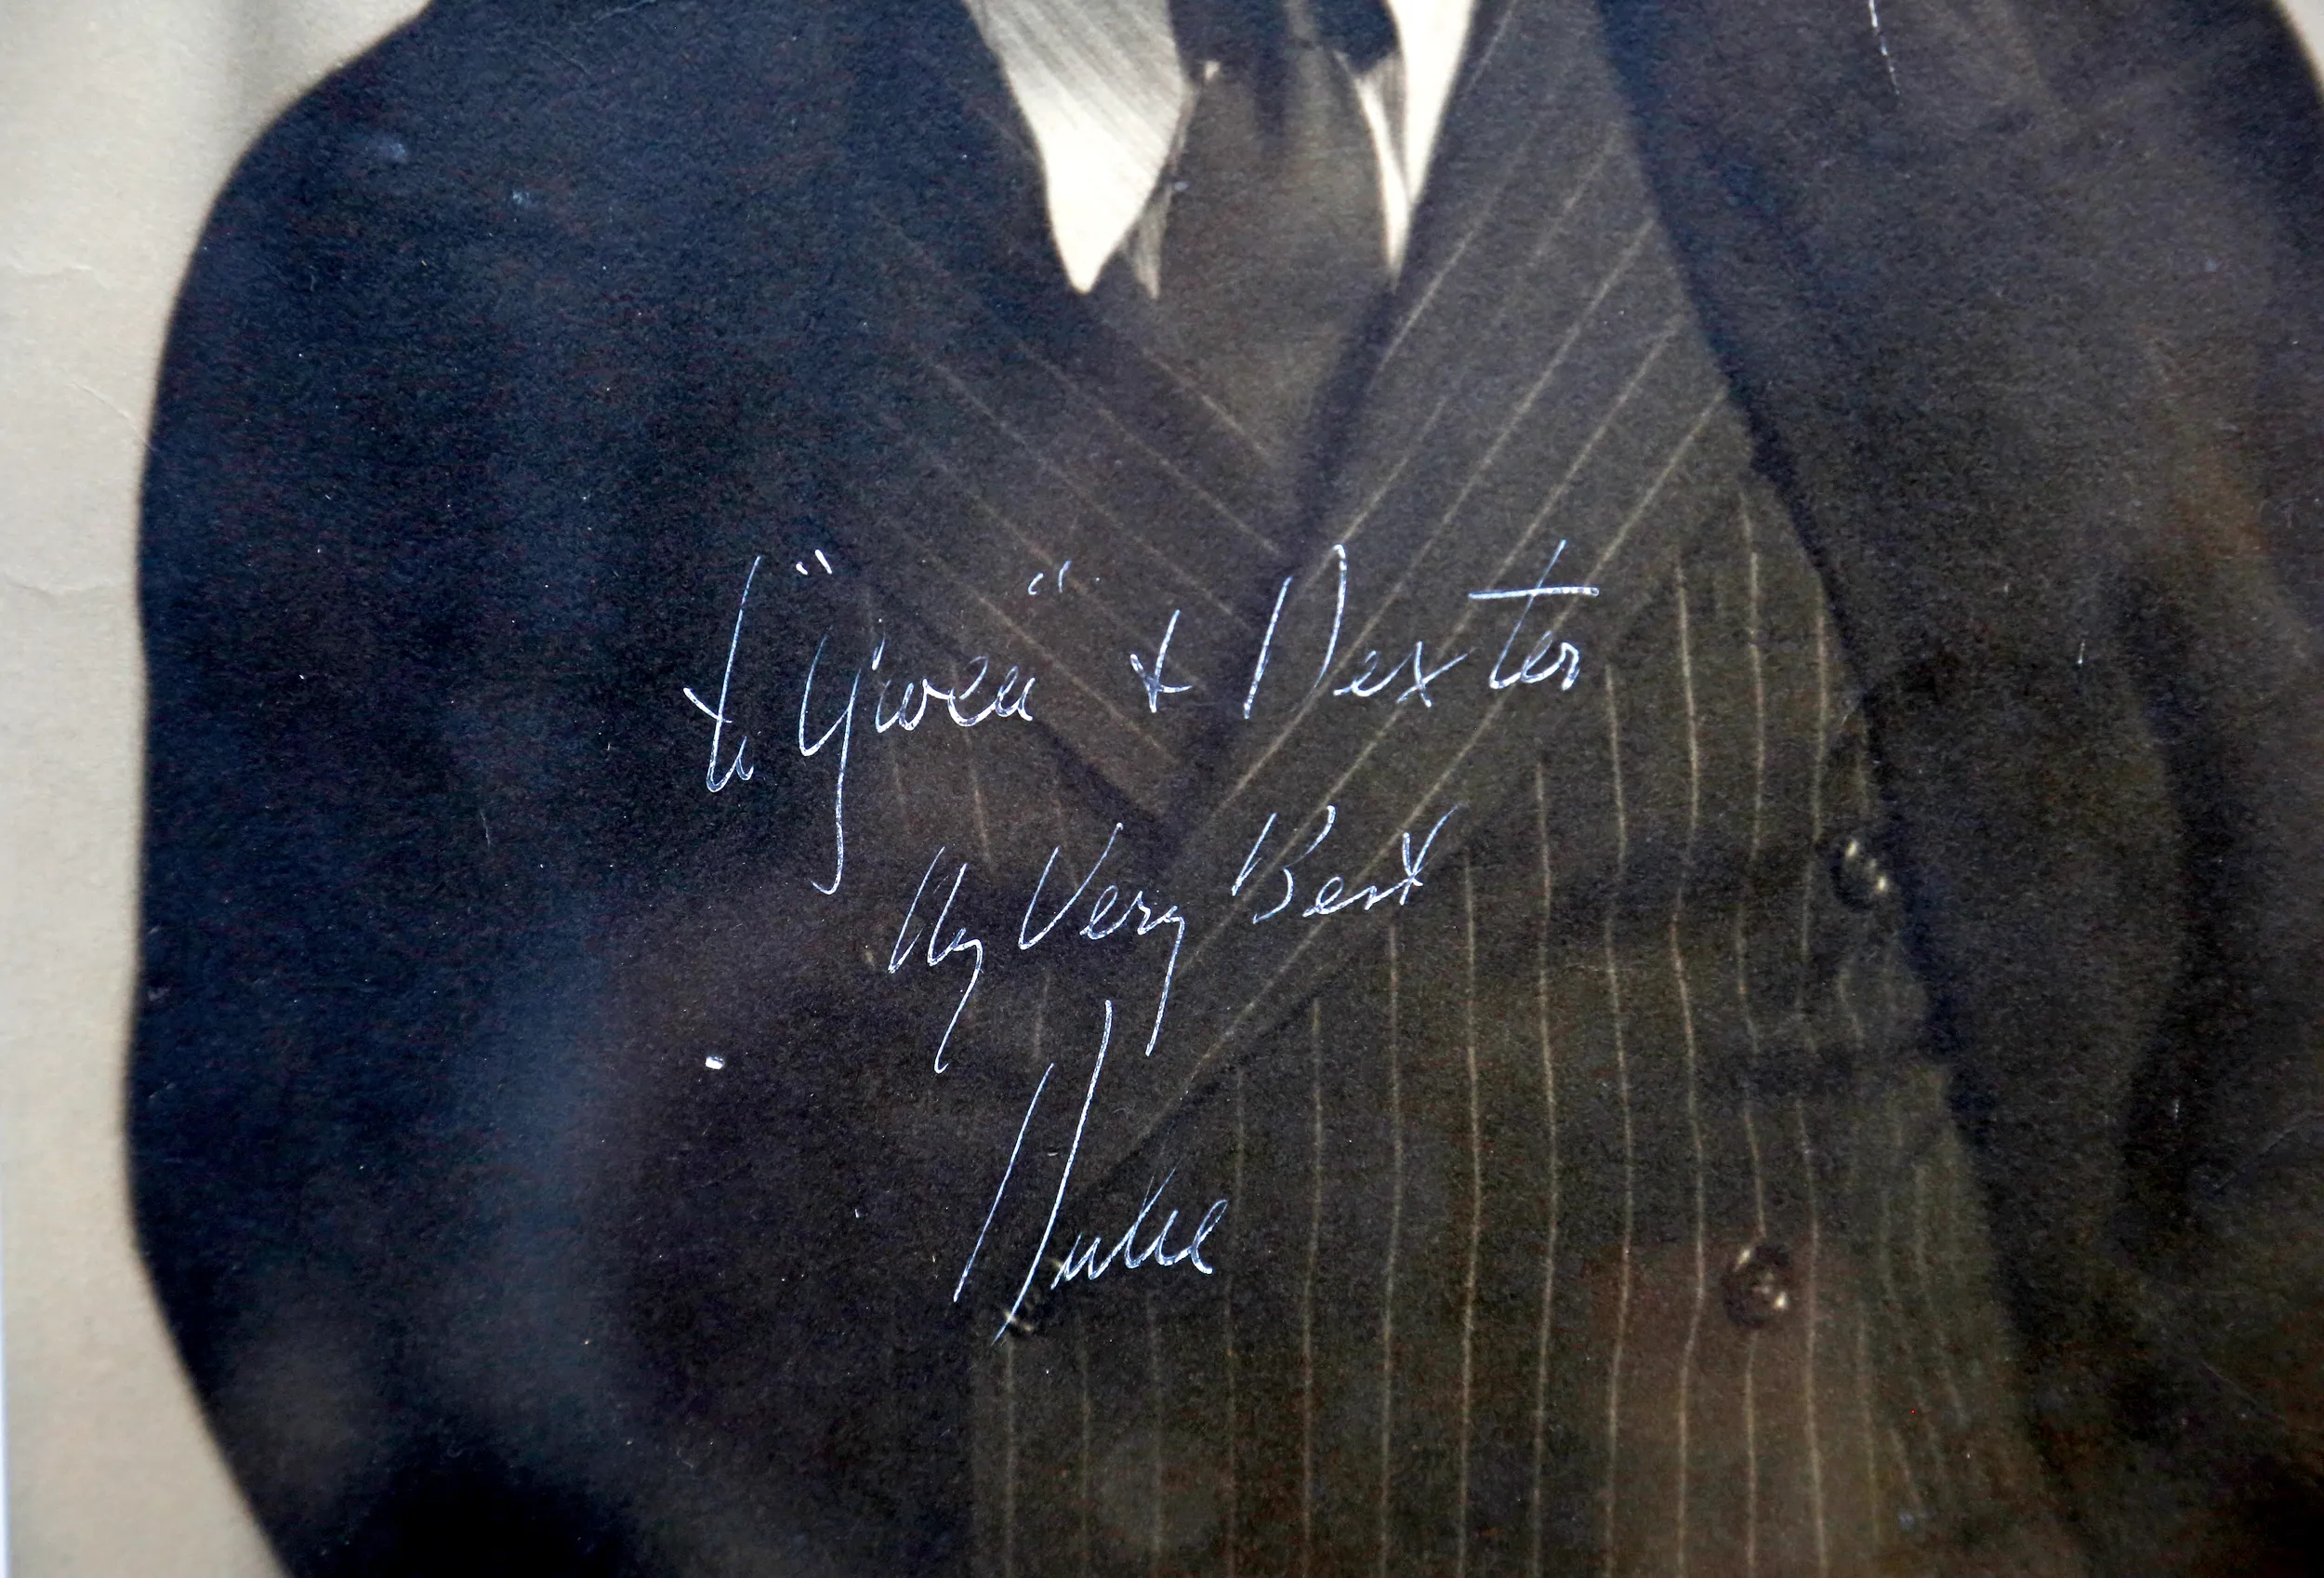 to "Gwen" & Dexter
My Very Best
Duke